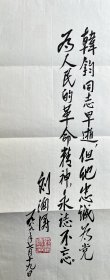 韩钧同志早逝，但他忠诚为党
为人民的革命精神，永志不忘
刘澜涛
一九八二年七月十九日